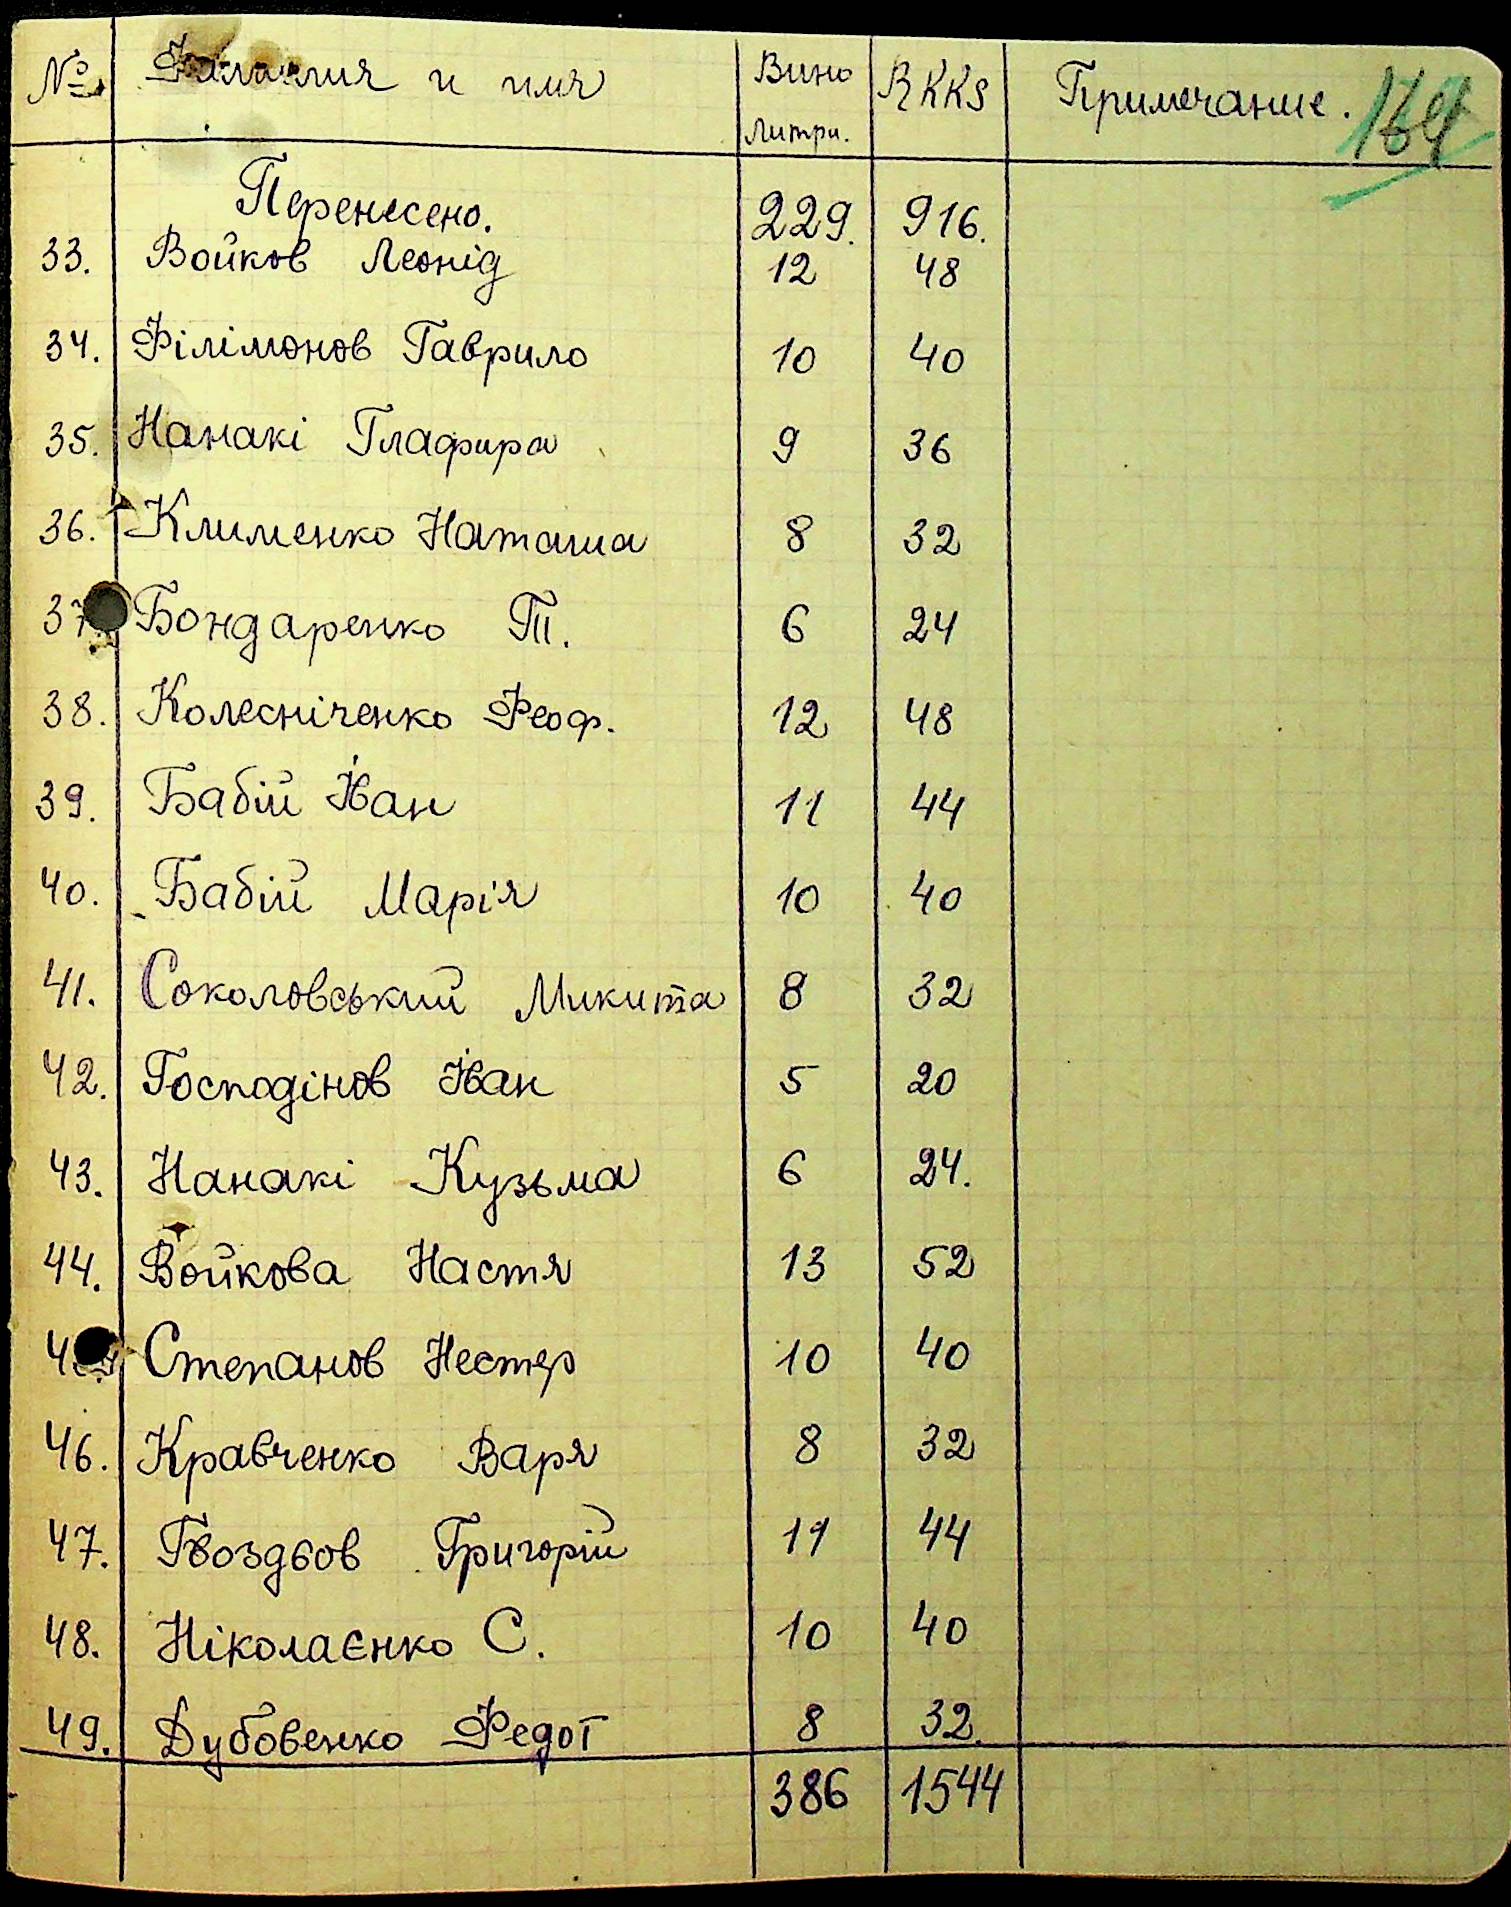 № Фамилия и имя Вино литри. RKKS Примечание. 164
Перенесено. 229. 916.
33. Войков Леонід 12 48
34. Філімонов Гаврило 10 40
35. Нанакі Глафира 9 36
36. Клименко Наташа 8 32
37. Бондаренко Т. 6 24
38. Колесніченко Феоф. 12 48
39. Бабій Іван 11 44
40. Бабій Марія 10 40
41. Соколовський Микита 8 32
42. Господінов Іван 5 20
43. Нанакі Кузьма 6 24.
44. Войкова Настя 13 52
Степанов Нестер 10 40
46. Кравченко Варя 8 32
47. Гвоздьов Григорій 11 44
48. Ніколаєнко С. 10 40
49. Дубовенко Федот 8 32.
386 1544